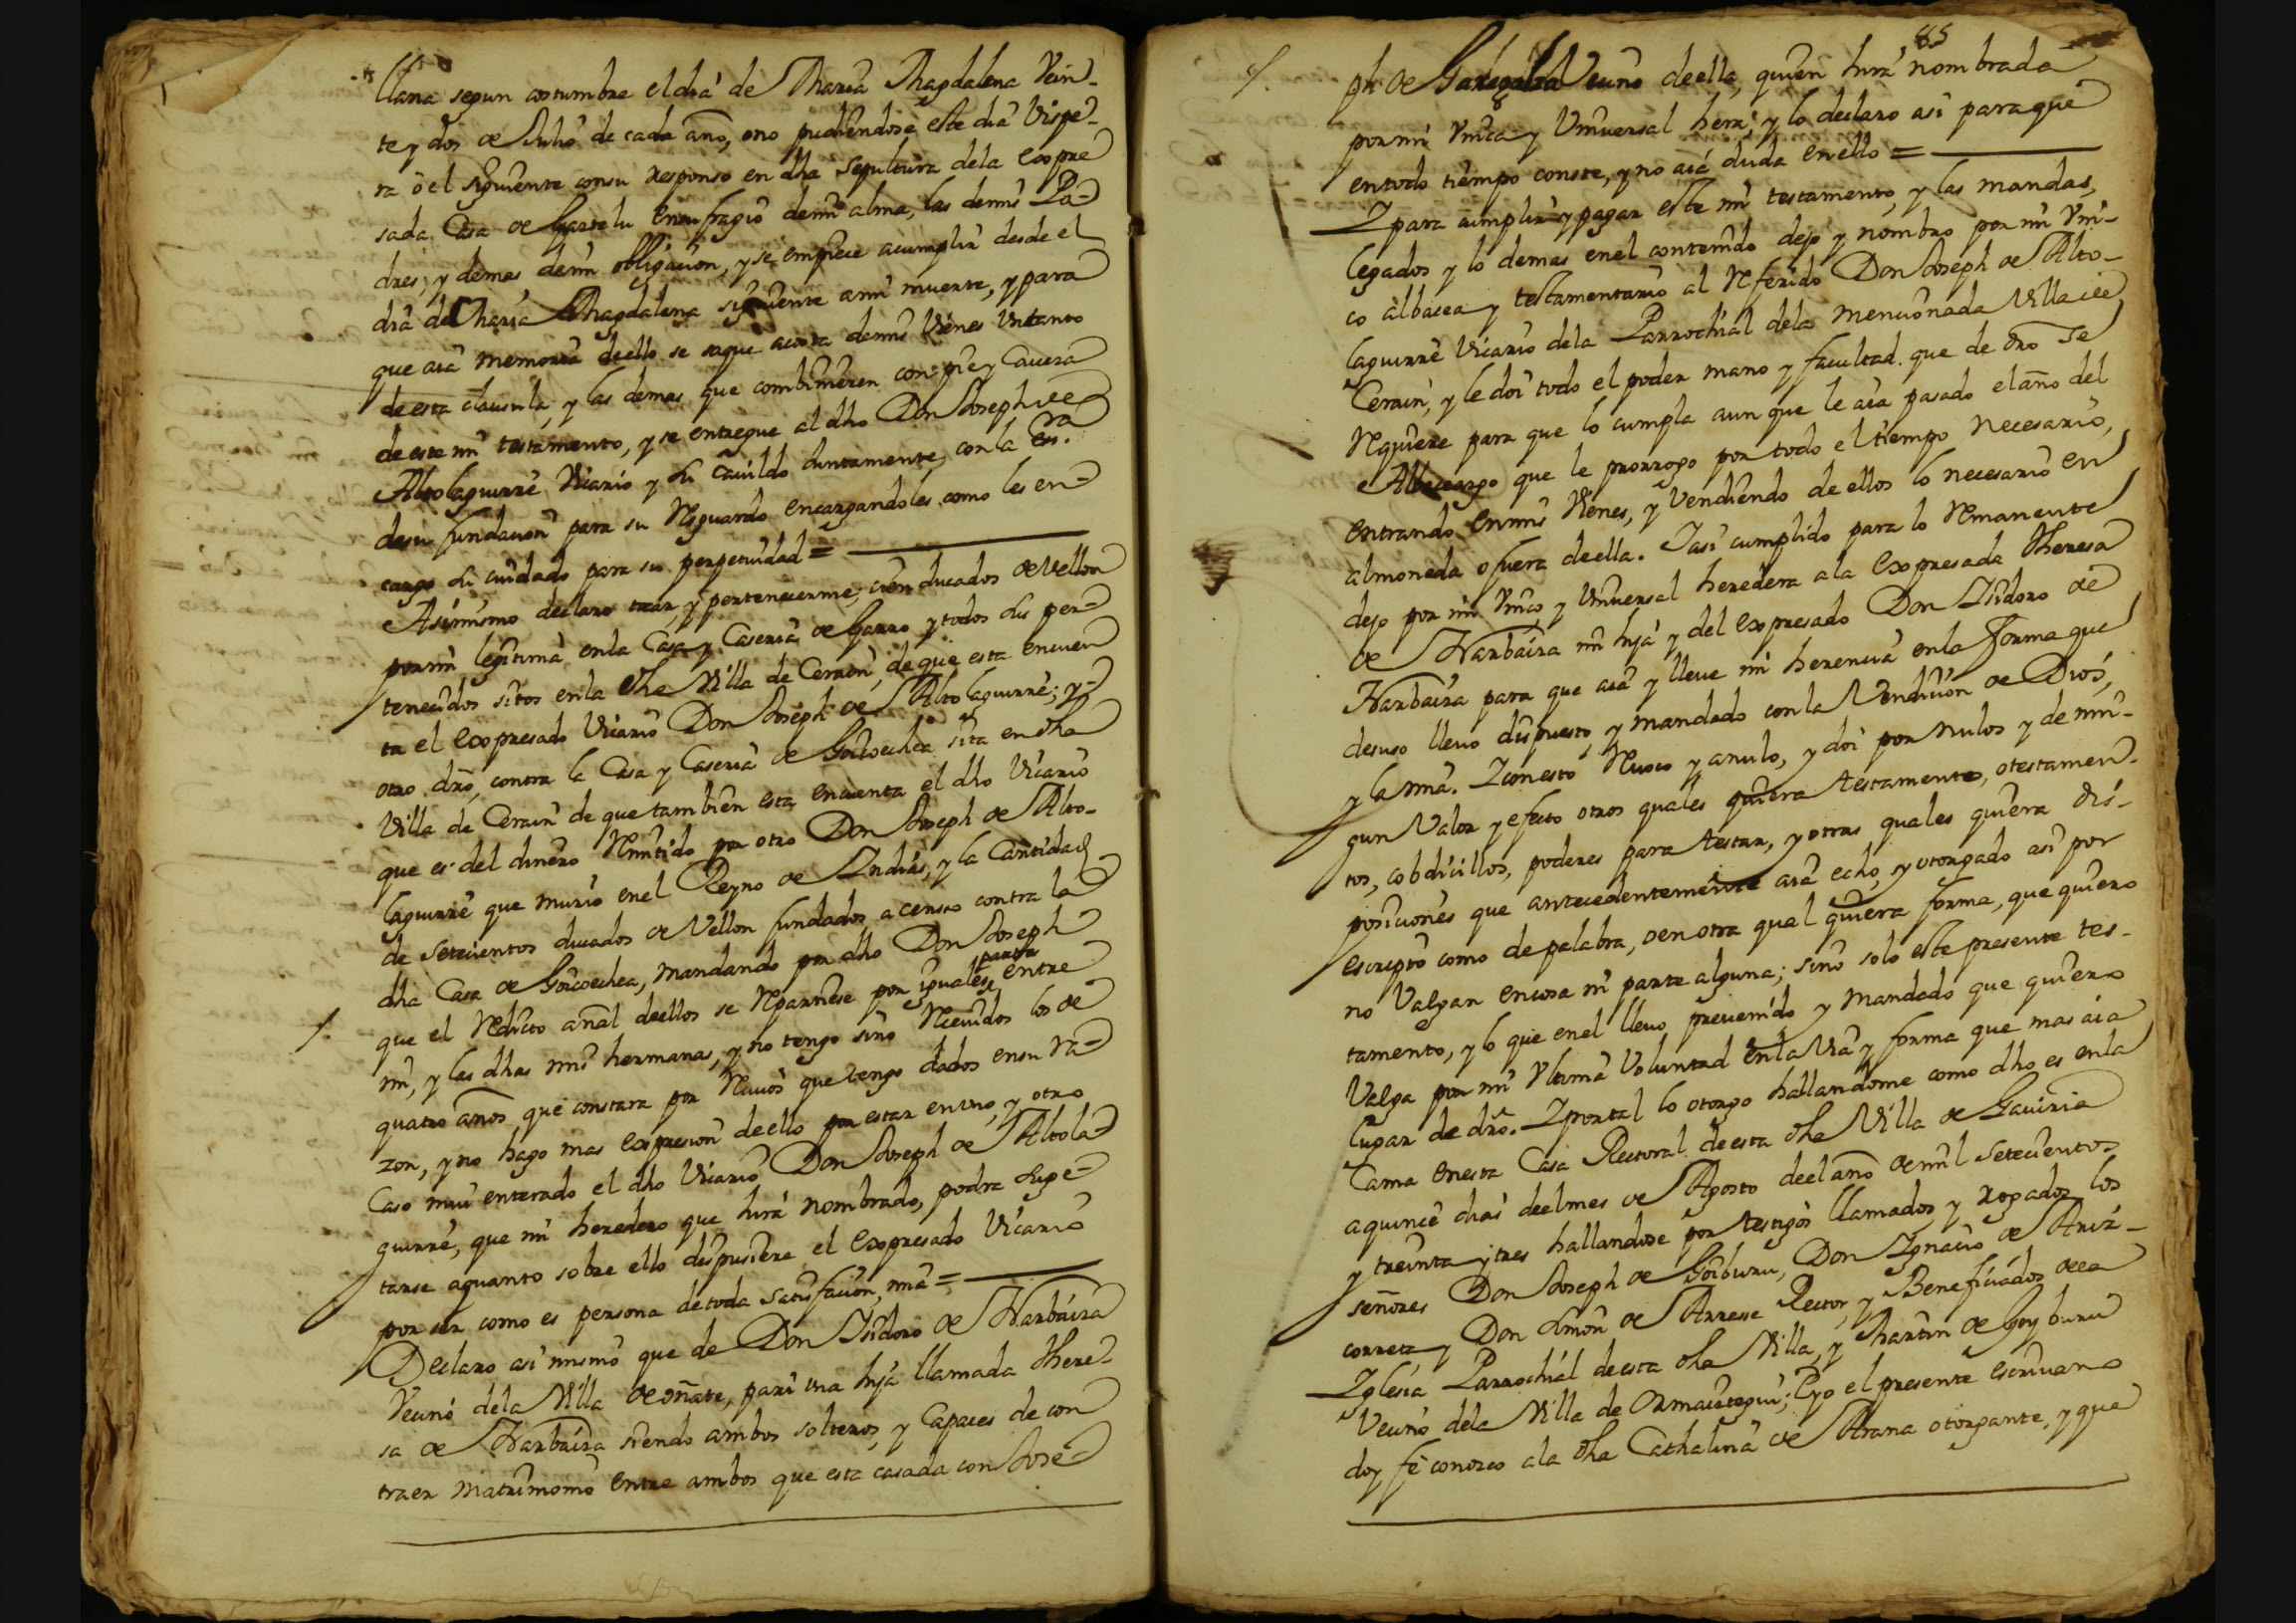 llana segun costumbre el dia de Maria Magdalena Vein-
te y dos de Julio de cada año, o no pudiendose este dia Vispe-
ra o el siguiente con su responso en dha sepultura de la expre
sada Casa de Garzelu en sufragio de mi alma, las de mis Pa-
dres, y demas de mi obligacion, y se empiece a cumplir desde el
dia de Maria Magdalena siguiente a mi muerte, y para
que aia memoria de ello se saque a costa de mis Vienes Vn tanto
de esta clausula, y las demas que combinieren con pie y Caveza
de este mi testamento, y se entregue al dho Don Joseph de
Altolaguirre Vicario y su Cavildo juntamente con la
de su fundacion para su Resguardo encargandoles como les en-
cargo su cuidado para su perpetuidad =
Asimismo declaro tener, y pertenecerme, cien ducados de Vellon
por mi legitima en la Casa y Caseria de Garro y todos sus per-
tenecidos sitos en la dha Villa de Cerain, de que esta en cuen
ta el expresado Vicario Don Joseph de Altolaguirre; y
otro dro, contra la Casa y Caseria de Goicoechea sita en dha
Villa de Cerain de que tambien esta en cuenta el dho Vicario
que es del dinero Remitido por otro Don Joseph de Alto-
laguirre que murio en el Reyno de Indias, y la Cantidad
de Setecientos ducados de Vellon fundados a censo contra la
dha Casa de Goicoechea, mandando por dho Don Joseph
que el Redito anal de ellos se Repartiese por iguales partes entre
mi, y las dhas mis hermanas, y no tengo sino Recividos los de
quatro años que constara por Recivos que tengo dados en su ra-
zon, y no hago mas expresion de ello por estar en uno, y otro
Caso mui enterado el dho Vicario Don Joseph de Altola-
guirre, que mi heredero que hira nombrado, podra suge-
tarse a quanto sobre ello dispusiere el expresado Vicario
por ser como es persona de toda satisfacion, mia =
Declaro asi mismo que de Don Isidoro de Narbaiza
Vecino de la Villa de oñate, pari una hija llamada There-
sa de Narbaiza siendo ambos solteros, y Capaces de con
traer matrimonio entre ambos que esta casada con Jose-
85
ph de Vecino de ella, quien hira nombrada
por mi Vnica y Vniversal hera; y lo declaro asi para que
en todo tiempo conste, y no aia duda en ello =
I para cumplir y pagar este mi testamento, y las mandas,
legados y lo demas en el contenido dejo y nombro por mi Vni-
co albacea y testamentario al Referido Don Joseph de Alto-
laguirre Vicario de la Parrochial de la mencionada Villa de
Cerain, y le doi todo el poder mano y facultad que de dro se
Requiere para que lo cumpla aun que le aia pasado el año del
Albaceazgo que le prorrogo por todo el tiempo necesario,
entrando en mis Vienes, y Vendiendo de ellos lo necesario en
almoneda o fuera de ella. I asi cumplido para lo Remanente
dejo por mi Vnica y Vniversal heredera a la expresada Theresa
de Narbaiza mi hija y del expresado Don Isidoro de
Narbaiza para que aia y lleve mi herencia en la forma que
de suso llevo dispuesto, y mandado con la Vendicion de Dios,
y la mia. I con esto Revoco y anulo, y doi por nulos y de nin-
gun Valor y efecto otros quales quiera testamento, o testamen-
tos, cobdicillos, poderes para testar, y otras quales quiera dis-
posiciones que antecedentemente aia echo, y otorgado asi por
escripto como de palabra, o en otra qual quiera forma, que quiero
no Valgan en cosa ni parte alguna; sino solo este presente tes-
tamento, y lo que en el llevo prevenido y mandado que quiero
Valga por mi Vltima Voluntad en la Via y forma que mas aia
lugar de dro. I por tal lo otorgo hallandome como dho es en la
Cama en esta Casa Rectoral de esta dha Villa de Gaviria
a quince dias de el mes de Agosto de el año de mil setecientos
y treinta y tres hallandose por testigos llamados, y rogados los
señores Don Joseph de Goiburu, Don Ignacio de Ariz-
correta y Don Simon de Arrese Rector, y Beneficiados de la
Iglesia Parrochial de esta dha Villa, y Martin de Goyburu
Vecino de la Villa de Ormaiztegui; E yo el presente escrivano
doy fe conozco a la dha Cathalina de Arana otorgante, y que